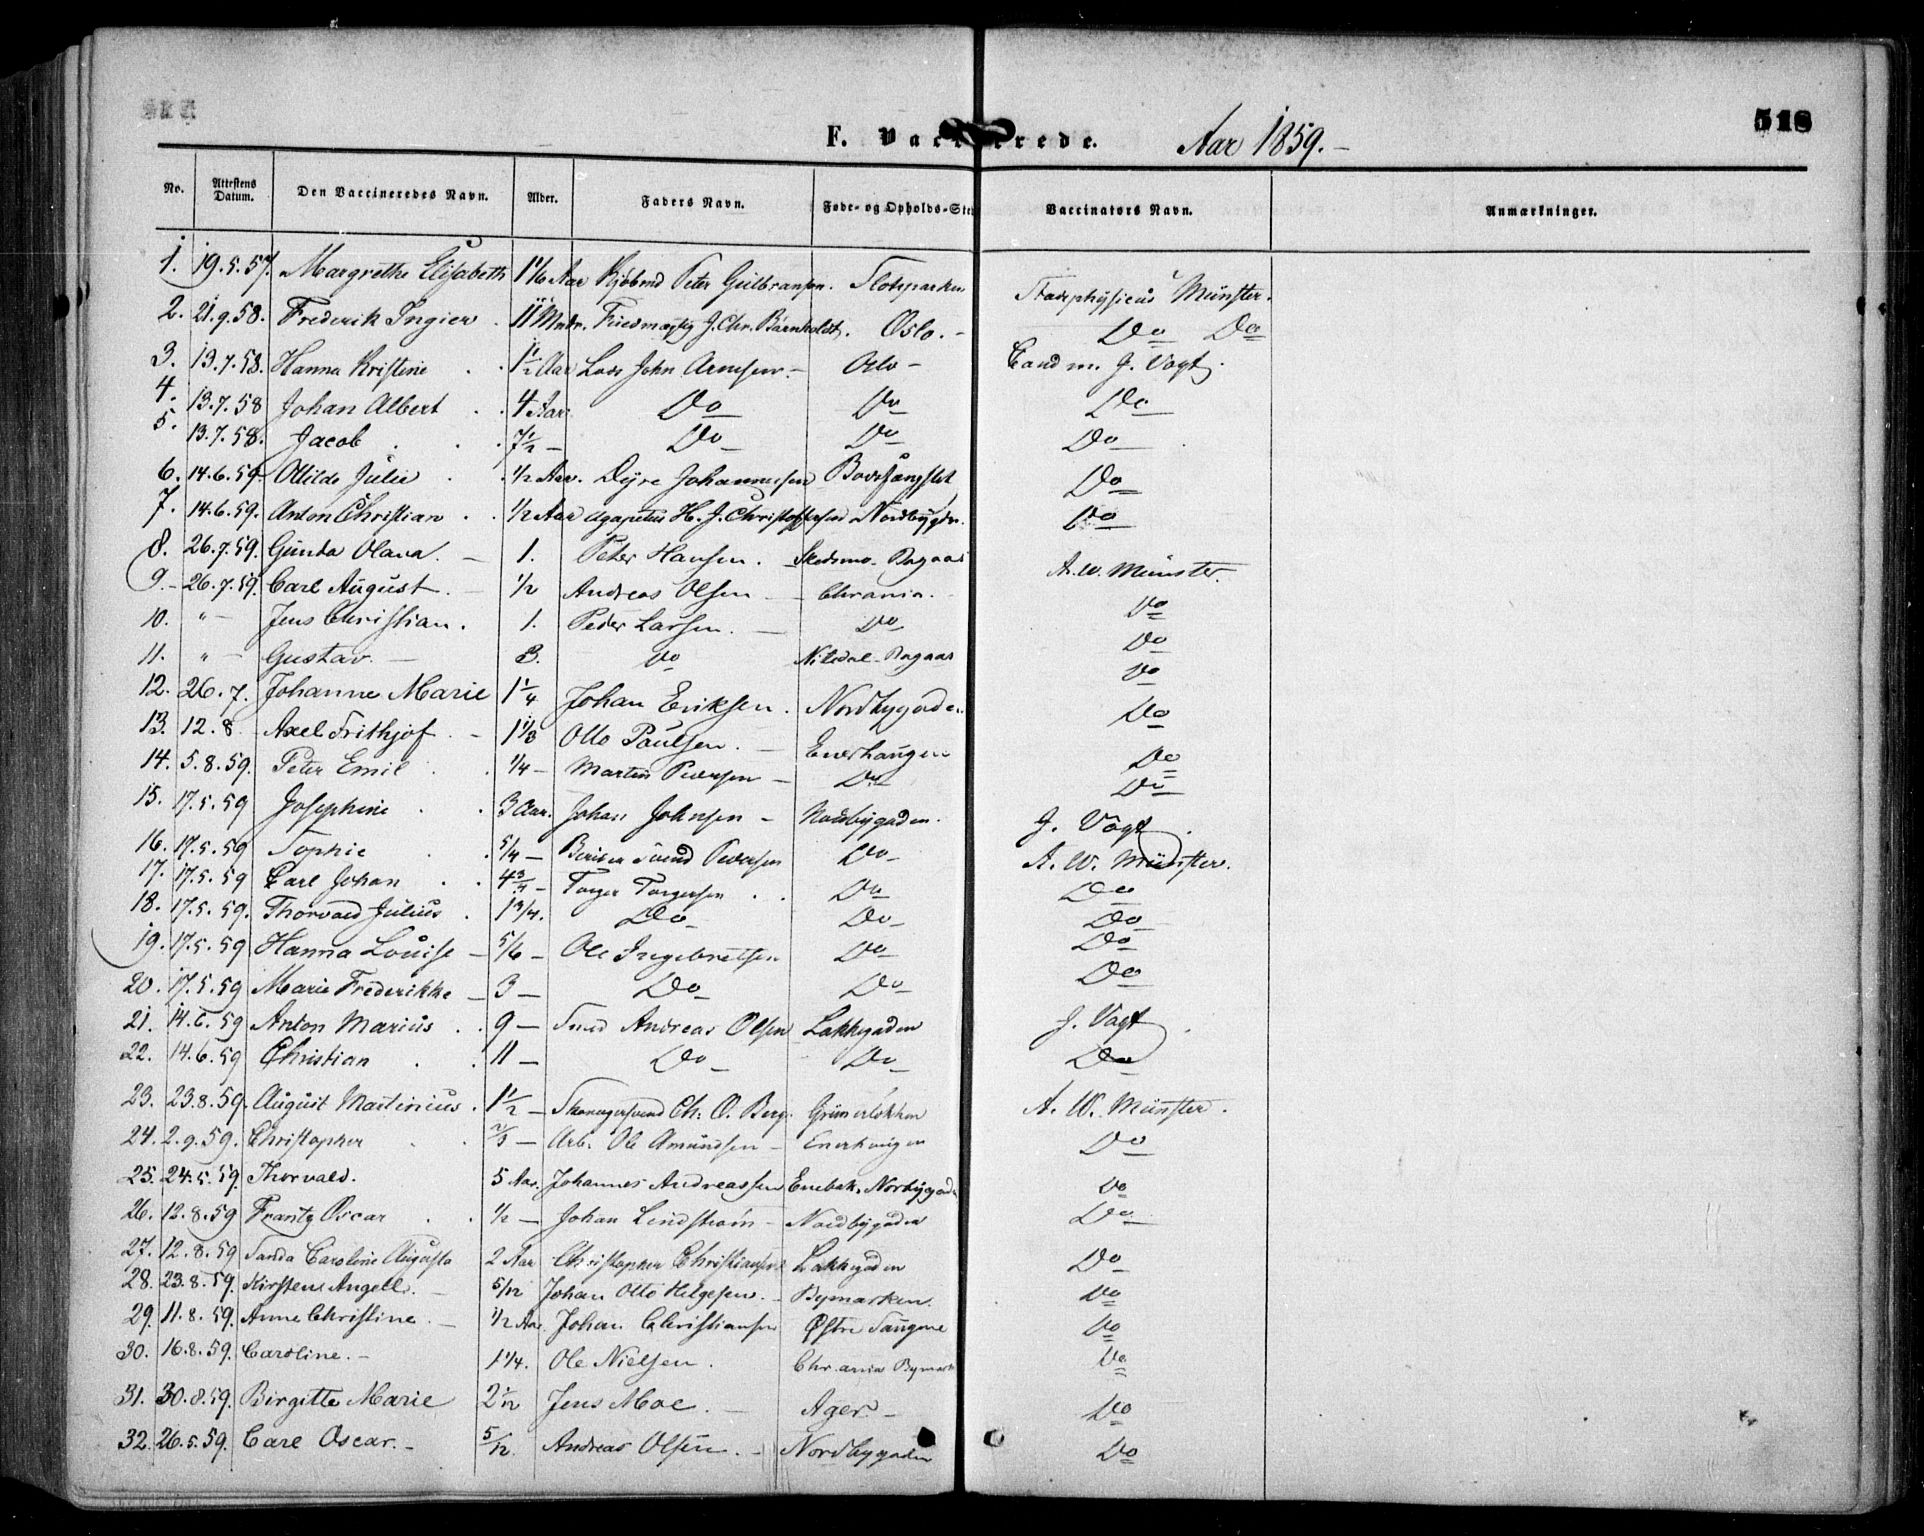 518
F. Vaccinerede. Aar 1859.-
No. Attestens Datum. Den Vaccineredes Navn. Alder. Faders Navn. Føde- og Opholds-Ste Vaccinators Navn. Anmærkninger.
1. 19.5.57. Margrethe Elisabeth 1 1/6 Aar Kjøbmd Peter Gulbransen. Slotsparken Stadsphysicus Münster.
2. 21.9.58. Frederik Ingier. 11 Mndr. J. Chr. Barnholdt. Oslo.- Do Do
3. 13.7.58. Hanna Kristine 1 1/2 Aar Lods John Arnesen.- Oslo- Cand m. J. Vogt.
4. 13.7.58 Johan Albert 4 Aar Do Do Do
5. 13.7.58. Jacob 7 1/2 - Do Do Do
6. 14.6.59. Olilde Julie 1/2 Aar. Dyre Johannessen Do
7. 14.6.59. Anton Christian 1/2 Aar Agapetus H. J. Christoffersen Nordbygdn. Do
8. 26.7.59. Gunda Olava. - 1. Peter Hansen. Skedsmo. Bogaar A. W. Münster.
9.- 26.7.59. Carl August. - 1/2 Andreas Olsen - Chrania. Do
10. " - Jens Christian. 1. Peder Larsen. - Do Do
11. " - Gustav. - 3. Do Nitedal- Bogaar Do
12. 26.7. Johanne Marie 1 1/4 Johan Eriksen. Nordbygaden. Do
13. 12.8. Axel Frithjof. - 1 1/3 Otto Paulsen. - Enerhaugen Do
14. 5.8.59. Peter Emil 1/4 - Martin Pedersen - Do Do
15. 17.5.59 Josephine 3 Aar. Johan Johnsen - Nordbygaden. J. Vogt.
16. 17.5.59 Sophie 5/4 - Svend Pedersen Do A. W. Münster.
17. 17.5.59 Carl Johan 4 3/4 - Torger Torgersen Do Do
18. 17.5.59. Thorvald Julius. 1 3/4. Do Do Do
19. 17.5.59 Hanna Louise - 5/6 - Ole Ingebretsen Do Do
20. 17.5.59 Marie Frederikke - 3 - Do Do Do
21. 14.6.59 Anton Marius 9 - Smed Andreas Olsen Lakkegaden J. Vogt.
22. 14.6.59 Christian 11 - Do Do Do
23. 23.8.59. August Martinius. 1 1/2 - Ch. O. Berg. Grünerløkken A. W. Münster.
24. 2.9.59. Christopher 2/3 - Arb. Ole Amundsen - Enerhaugen Do
25. 24.5.59. Thorvald. 5 Aar. Johannes Andreassen Enebak. Norbygade Do
26. 12.8.59 Frantz Oscar 1/2 - Johan Lindstrøm - Nordbygaden Do
27. 12.8.59 Sanda Caroline Augusta 2 Aar Christopher Christiansen Lakkegaden Do
28. 23.8.59. Kirstens Angell. - 5/12 Johan Otto Helgesen. - Bymarken. Do
29. 11.8.59. Anne Christine. - 1/2 Aar. Johan Christiansen Østre Saugene Do
30. 16.8.59. Caroline. - 1 1/4. Ole Nielsen. Chrania Bymark Do
31. 30.8.59. Birgitte Marie 2 1/12 Jens Moe. - Ager. - Do
32. 26.5.59. Carl Oscar. - 5/12. Andreas Olsen. - Nordbygaden Do